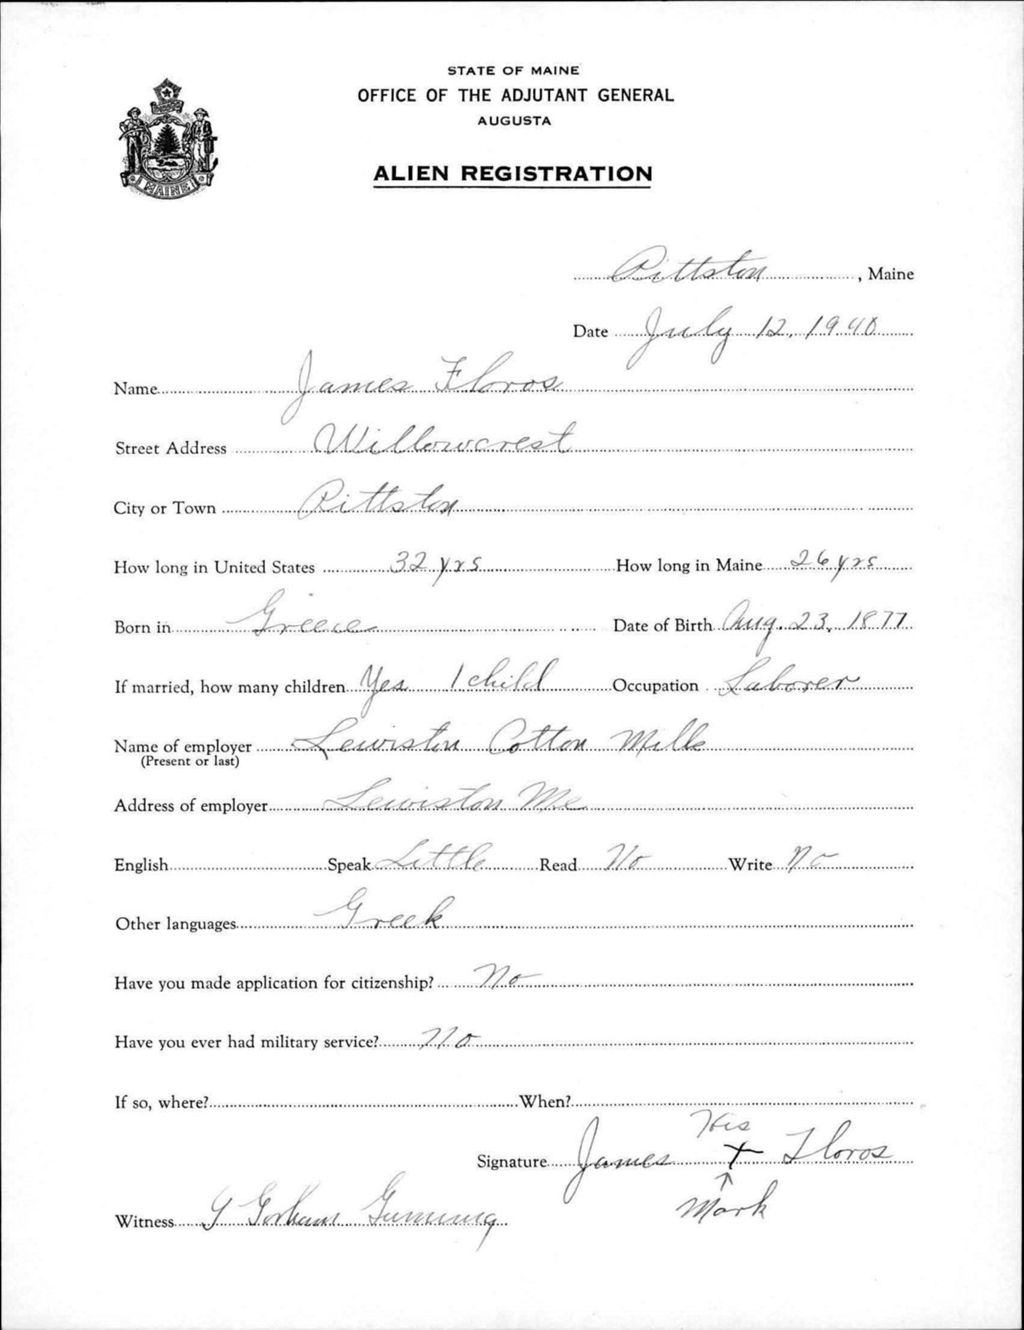 STATE OF MAINE
OFFICE OF THE ADJUTANT GENERAL
AUGUSTA
ALIEN REGISTRATION
MAINE
Pittston, Maine
Date July 12, 1940
Name James Floros
Street Address Willowcrest
City or Town Pittston
How long in United States 32 yrs How long in Maine 26 yrs
Born in Greece Date of Birth Aug. 23, 1877
If married, how many children Yes 1 child Occupation Laborer
Name of employer Lewiston Cotton Mills
(Present or last)
Address of employer Lewiston Me
English Speak Little Read No Write No
Other languages Greek
Have you made application for citizenship? No
Have you ever had military service? No
If so, where? When?
His
Signature James + Floros
Mark
Witness G Gorham